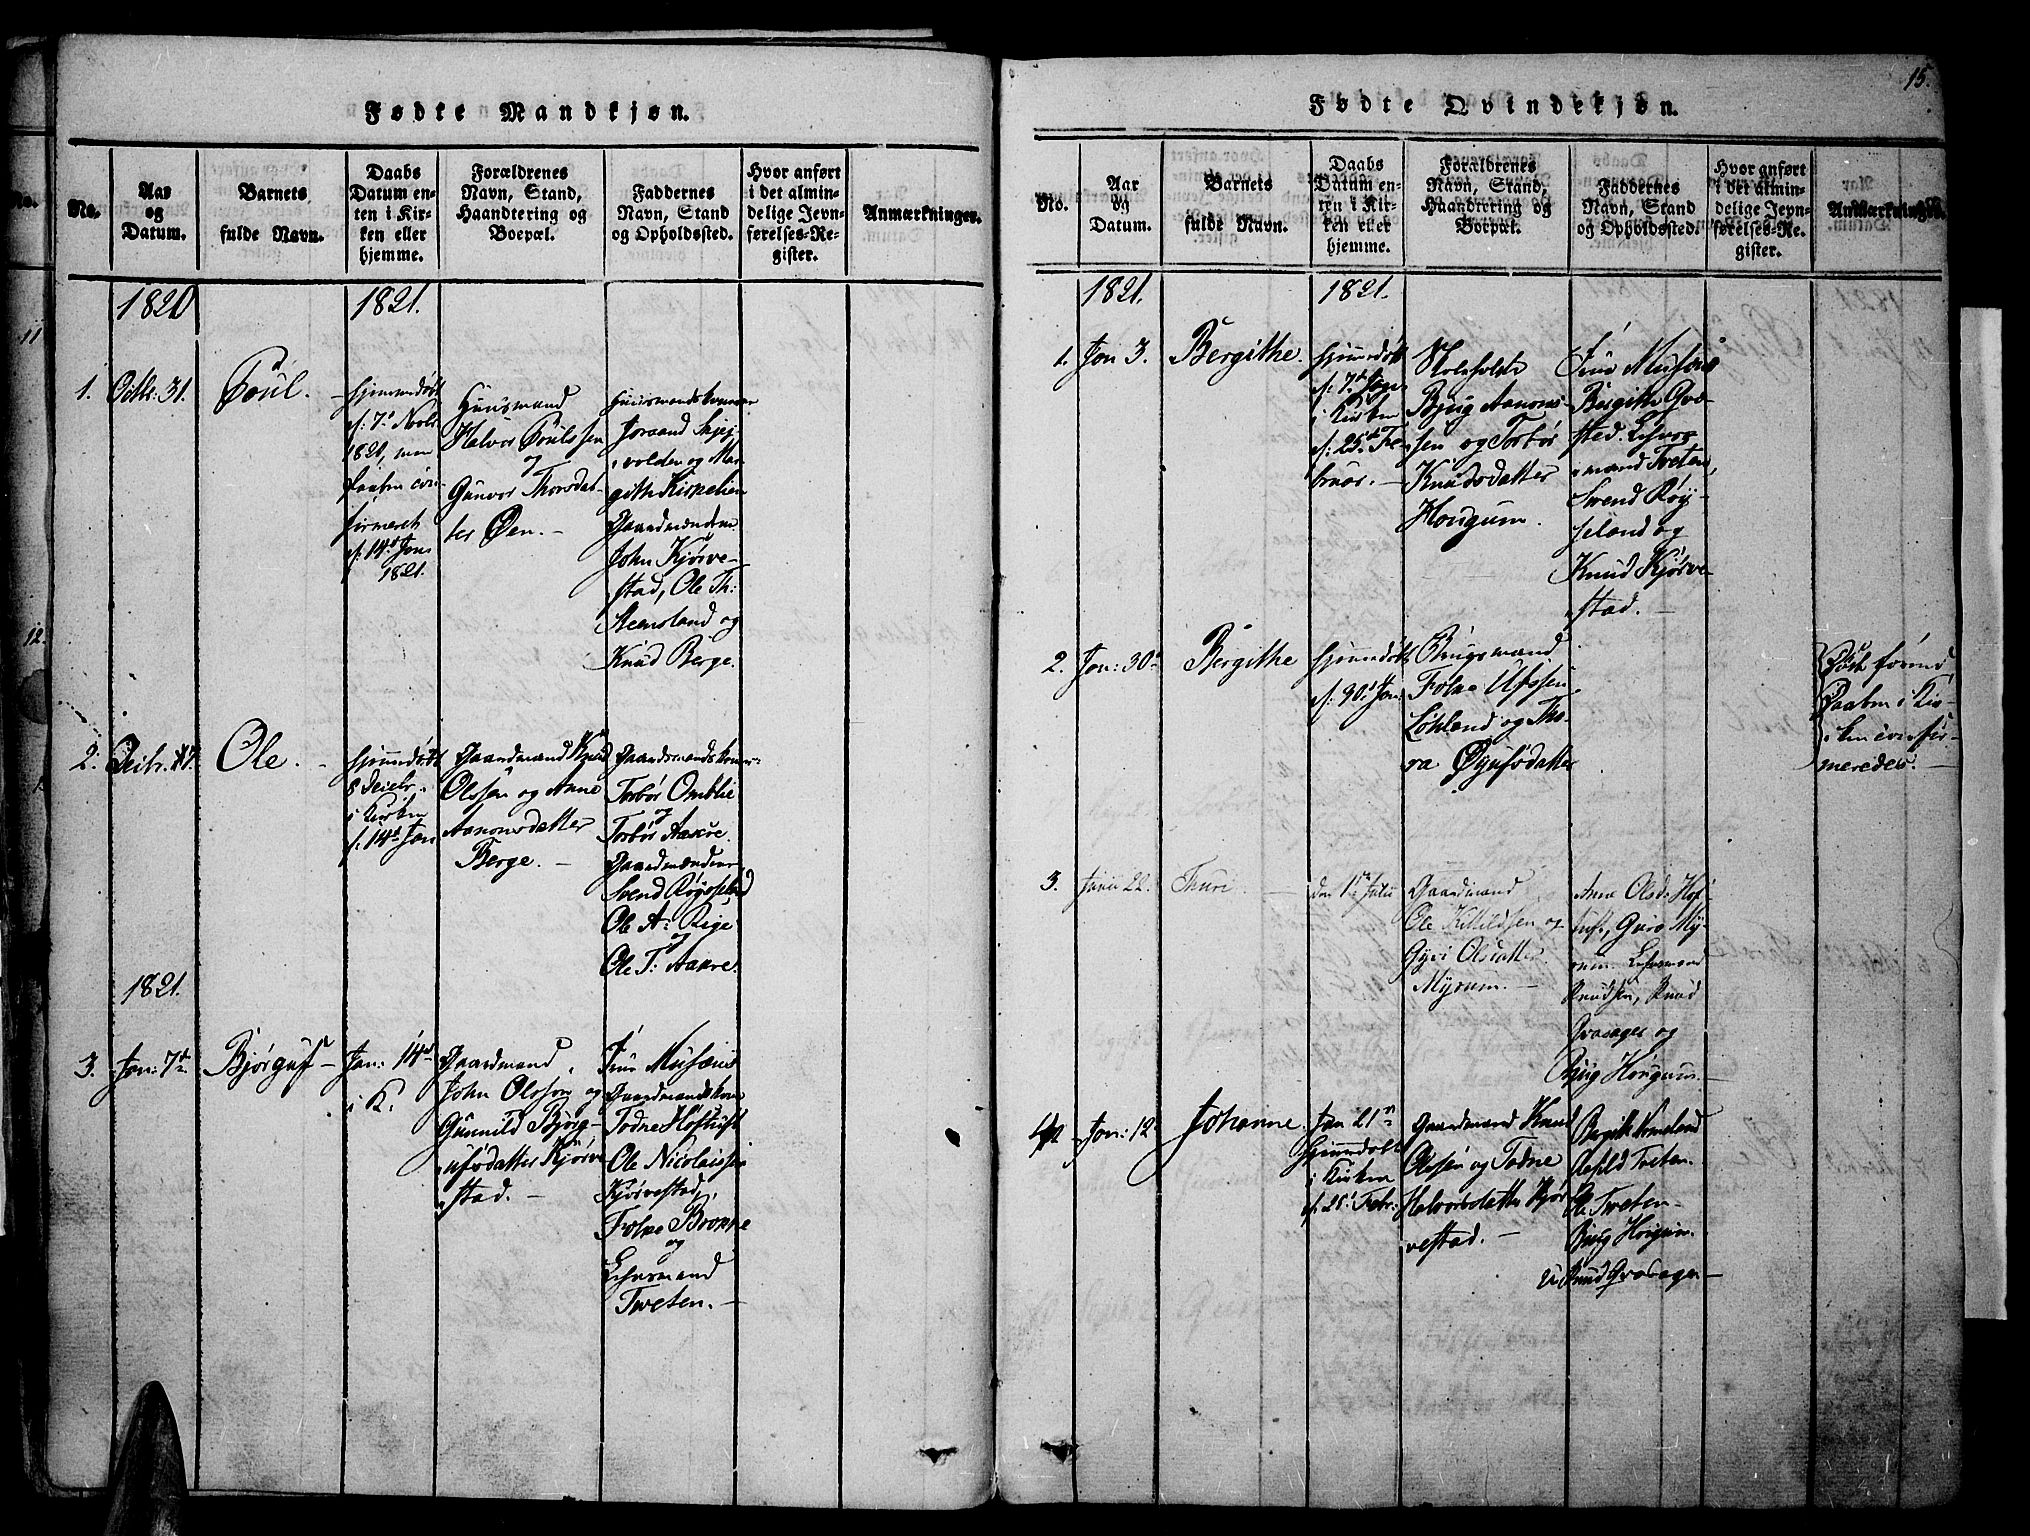 Fødte Mandkjøn.
No.
Aar
og
Datum.
Barnets
fulde Navn.
Daabs
Datum en-
ten i Kir-
ken eller
hjemme.
Forældrenes
Navn, Stand,
Haandtering og
Boepæl.
Faddernes
Navn, Stand
og Opholdssted.
Hvor anført
i det almin-
delige Jevn-
førelses-Re-
gister.
Anmærkninger.
1820
1821.
1. Octbr: 31.
Poul.
hjemmedøbt
d: 7de Novbr
1821, men
Daaben con-
firmeret
d: 14de Jan
1821.
Huusmand
Halvor Poulssen
og
Gunvor Thorsdat-
ter Øen.
Huusmandskonen
Joraand
volden og Mar-
githe Kirkelien
Gaardmændene
John Kjørve-
stad, Ole Th:
Steensland og
Knud Berge.
2.
Ole.
hjemmedøbt
8 Decbr.
i Kirken
d. 14de Jan
Gaardmand Knud
Olssen og Anne
Aanonsdatter
Berge.
Gaardmandskoner
Torbør Omblie
og
Torbør Aakre.
Gaardmændene
Svend Røysseland
Ole A: Rige
og
Ole T: Aakre.
1821.
3. Jan: 7de
Bjørguf
Jan: 14de
i K.
Gaardmand
John Olsson og
Gunnild Bjørg-
ufsdatter Kjørve-
stad.
Frue Musæus
Gaardmandskone
Todne Hoftuft
Ole Nicolaissen
Kjørvestad,
Folke Brokke
og
Lehnsmand
Tveten.
15.
Fødte Qvindekjøn.
No.
Aar
og
Datum.
Barnets
fulde Navn.
Daabs
Datum en-
ten i Kir-
ken eller
hjemme.
Forældrenes
Navn, Stand,
Haandtering og
Boepæl.
Faddernes
Navn, Stand
og Opholdssted.
Hvor anført
i det almin-
delige Jevn-
førelses-Re-
gister.
Anmærkninger.
1821.
1821.
1. Jan 3.
Bergithe.
hjemmedøbt
d: 7de
i Kirken
d: 25de Fe-
bruar.
Bjug Aanons-
sen og Torbør
Knudsdatter
Hougum.
Frue Musæus
Bergithe Qva-
sted. Lehns-
mand Tveten,
Svend Røy-
seland og
Knud Kjørve-
stad.
2. Jan: 30te
Bergithe
hjemmedøbt
d: 30te Jan:
Brugsmand
Folke Ufssen
Løkland og Tho-
ra Øyufsdatter
Død førend
Daaben i Kir-
ken confir-
meredes.
3. Junii 22.
Thuri.
den 1ste Julii
Gaardmand
Ole Kittildsen og
Gyri Olsdatter
Myrum.
Anne Olsd: Hof-
tuft, Guro My-
rum. Lehnsmand
Knudsen, Knud
Qvasager og
Bjug Hougum.
4. Jan: 12
Johanne.
Jan 21de
hjemmedøbt
i Kirken
d. 25de Febr:
Gaardmand Knud
Olssen og Todne
Halvorsdatter Kjør-
vestad.
Bergith
Tveten.
Ole Tveten
Bjug Hougum.
Knud Qvasager